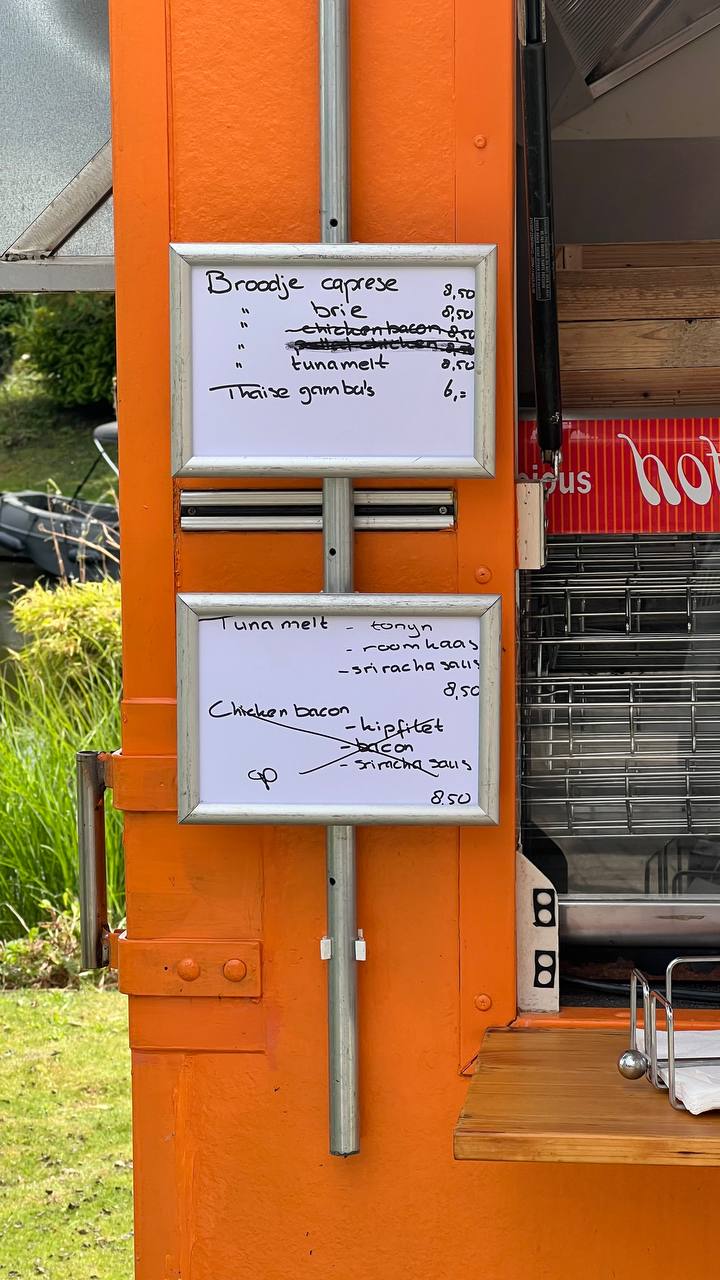 Broodje caprese 8,50
" brie 8,50
" chicken bacon 8,50
" pulled chicken 8,50
" tunamelt 8,50
Thaise gamba's 6,=
Tuna melt - tonyn
- roomkaas
- sriracha saus
8,50
Chicken bacon
- kipfilet
- bacon
- sriracha saus
op
8.50
hot